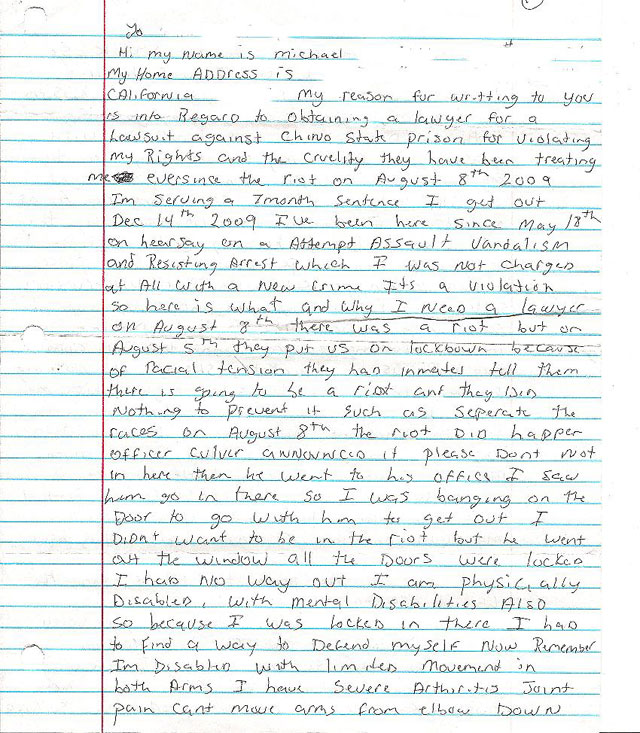 To
Hi my Name is michael
My Home ADDRess is
CAliforNia My reason for writting to you
is into Regard to obtaining a lawyer for a
Lawsuit against Chino State prison for violating
my Rights and the Cruelity they have been treating
me eversince the riot on August 8th 2009
Im serving a 7month sentence I get out
Dec 14th 2009 I've been here since May 18th
on hearsay on a Attempt Assault Vandalism
and Resisting Arrest which I was Not Charged
at All with a New Crime Its a violation
so here is what and why I Need a lawyer
on August 8th there was a riot but on
August 5th they put us on lockdown because
of racial tension they had inmates tell them
there is going to be a riot and they DiD
Nothing to prevent it such as seperate the
races on August 8th the riot DiD happen
officer culver aNNOUNCED it please Dont not
in here then he went to his office I saw
him go in there so I was banging on the
Door to go with him to get out I
DiDNt want to be in the riot but he went
out the window all the Doors were locked
I had No way out I am physicially
Disabled, with mental Disabilities Also
so because I was locked in there I had
to find a way to Defend myself Now Remember
Im Disabled with limited movement in
both Arms I have Severe Arthiritis Joint
pain cant move arms from elbow Down